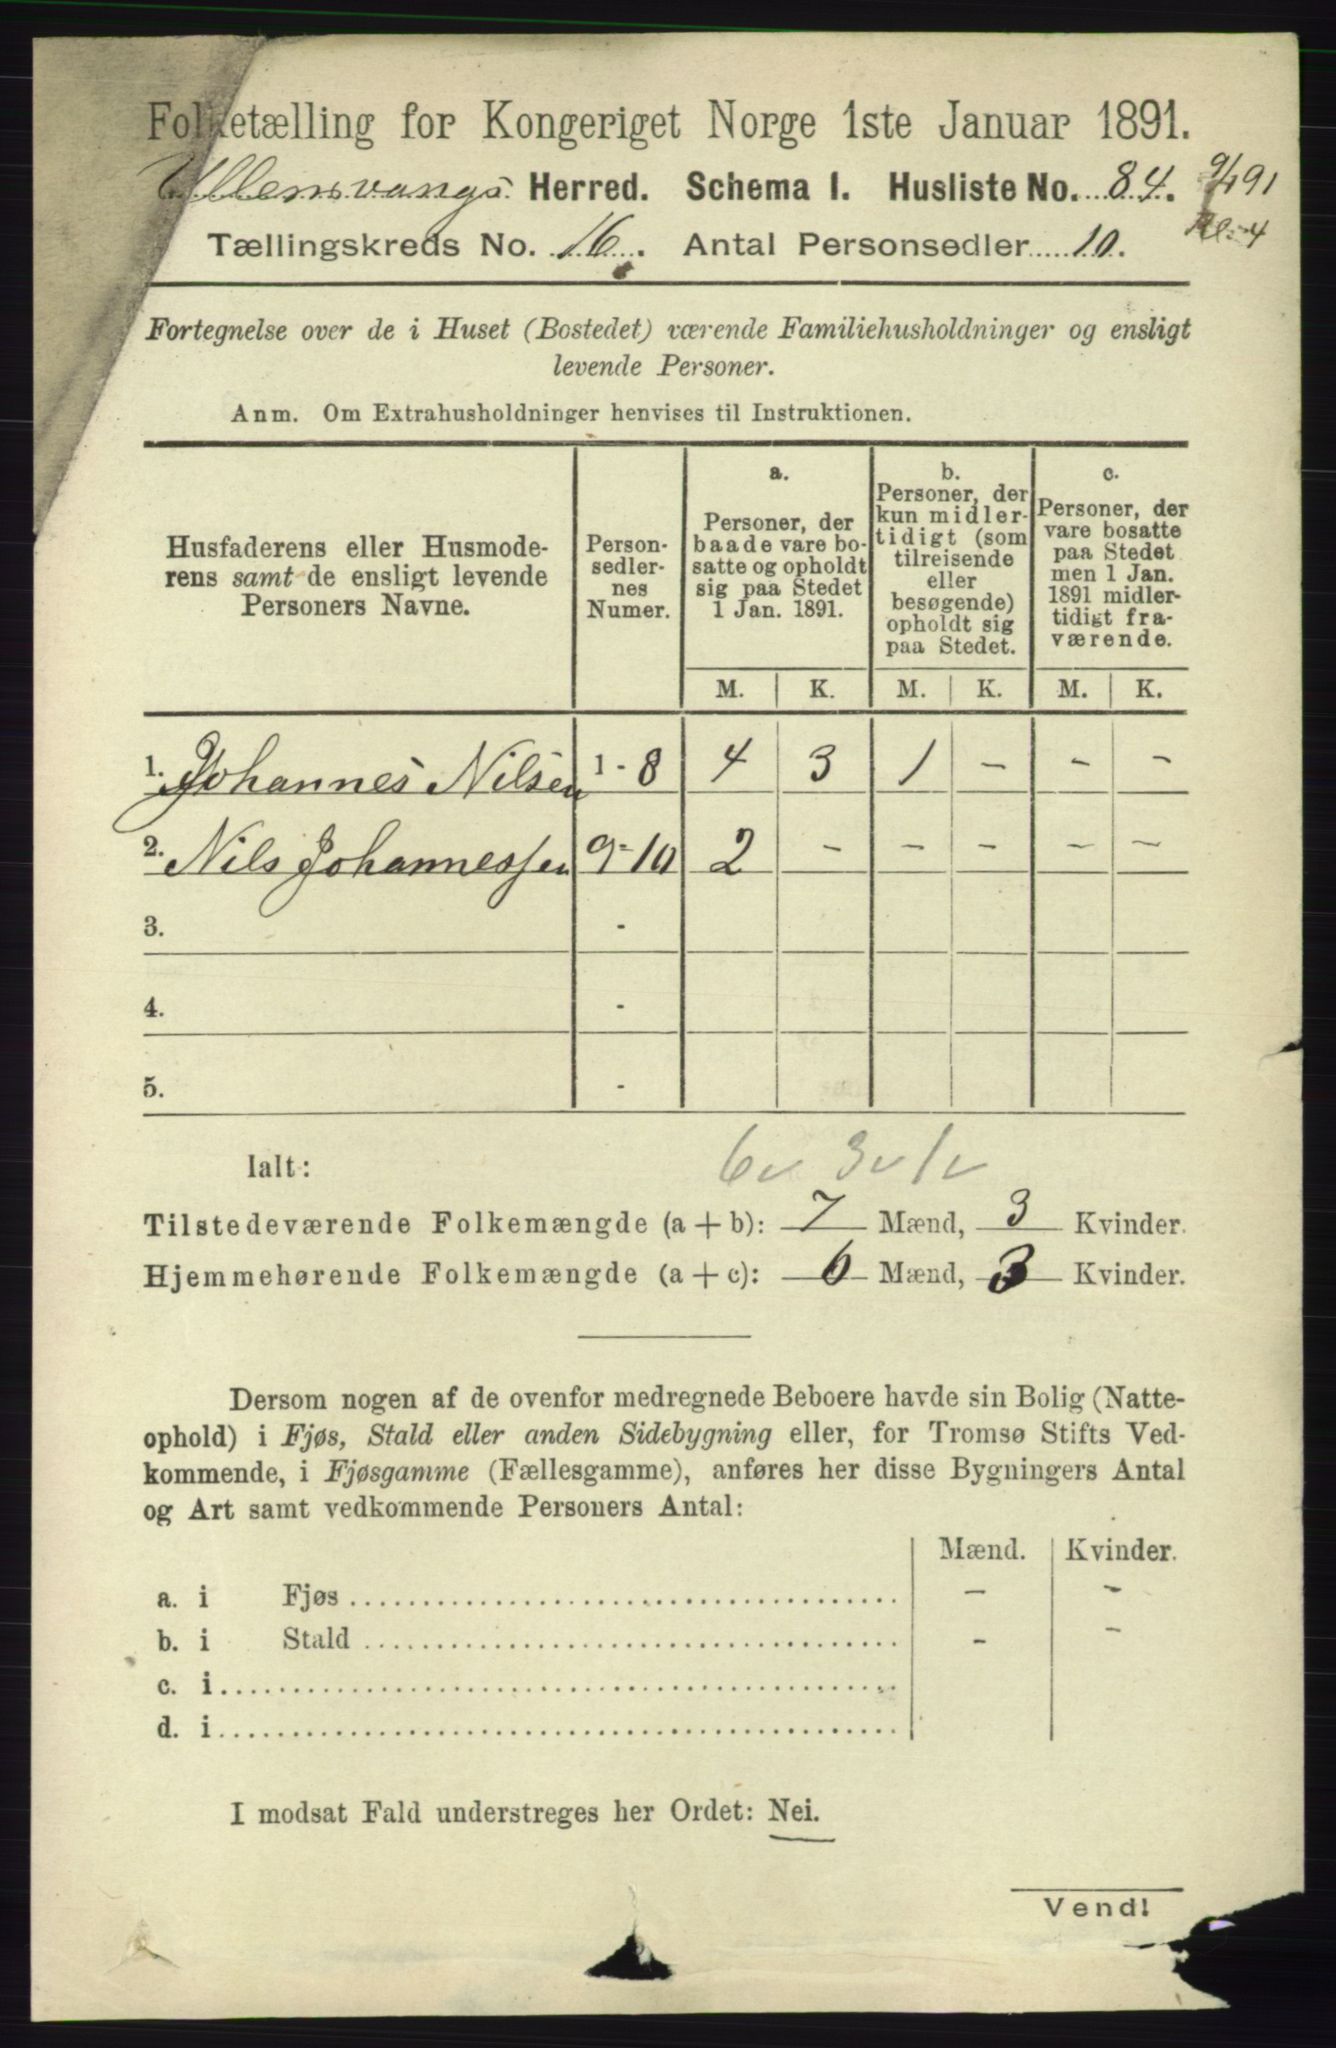 Folketælling for Kongeriget Norge 1ste Januar 1891.
Ullensvangs Herred. Schema I. Husliste No. 84. 9/4 91
Tællingskreds No. 16. Antal Personsedler 10.
Fortegnelse over de i Huset (Bostedet) værende Familiehusholdninger og ensligt
levende Personer.
Anm. Om Extrahusholdninger henvises til Instruktionen.
Husfaderens eller Husmode-
rens samt de ensligt levende
Personers Navne.
Person-
sedler-
nes
Numer.
a.
Personer, der
baade vare bo-
satte og opholdt
sig paa Stedet
1 Jan. 1891.
b.
Personer, der
kun midler-
tidigt (som
tilreisende
eller
besøgende)
opholdt sig
paa Stedet.
c.
Personer, der
vare bosatte
paa Stedet
men 1 Jan.
1891 midler-
tidigt fra-
værende.
M. K. M. K. M. K.
1. Johannes Nilsen 1-8 4 3 1 - - -
2. Nils Johannessen 9-10 2 - - - - -
3. -
4. -
5. -
6v 3v 1v
Ialt:
Tilstedeværende Folkemængde (a + b): 7 Mænd, 3 Kvinder.
Hjemmehørende Folkemængde (a + c): 6 Mænd, 3 Kvinder.
Dersom nogen af de ovenfor medregnede Beboere havde sin Bolig (Natte-
ophold) i Fjøs, Stald eller anden Sidebygning eller, for Tromsø Stifts Ved-
kommende, i Fjøsgamme (Fællesgamme), anføres her disse Bygningers Antal
og Art samt vedkommende Personers Antal:
Mænd. Kvinder.
a. i Fjøs - -
b. i Stald - -
c. i
d. i
I modsat Fald understreges her Ordet: Nei.
Vend!